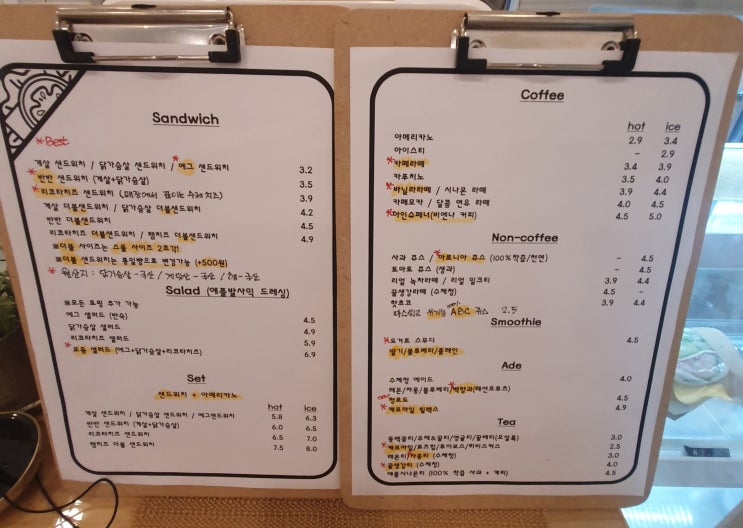 Sandwich
*Best
게살 샌드위치 / 닭가슴살 샌드위치 / *에그 샌드위치 3.2
*반반 샌드위치 (게살+닭가슴살) 3.5
*리코타치즈 샌드위치 (매장에서 끓이는 수제치즈) 3.9
게살 더블샌드위치 / 닭가슴살 더블샌드위치 4.2
반반 더블샌드위치 4.5
리코타치즈 더블샌드위치 / 햄치즈 더블샌드위치 4.9
※더블 사이즈는 스몰 사이즈 2조각!
※더블 샌드위치는 통밀빵으로 변경가능 (+500원)
* 원산지 : 닭가슴살-국산 / 계란-국산 / 햄-국산
Salad (메플발사믹 드레싱)
※모든 토핑 추가 가능
에그 샐러드 (반숙) 4.5
닭가슴살 샐러드 4.9
리코타치즈 샐러드 5.9
*모듬 샐러드 (에그+닭가슴살+리코타치즈) 6.9
Set
샌드위치 + 아메리카노
hot ice
게살 샌드위치 / 닭가슴살 샌드위치 / 에그샌드위치 5.8 6.3
반반 샌드위치 (게살+닭가슴살) 6.0 6.5
리코타치즈 샌드위치 6.5 7.0
햄치즈 더블 샌드위치 7.5 8.0
Coffee
hot ice
아메리카노 2.9 3.4
아이스티 - 2.9
*카페라떼 3.4 3.9
카푸치노 3.5 4.0
*바닐라라떼 / 시나몬 라떼 3.9 4.4
카페모카 / 달콤 연유 라떼 4.0 4.5
*아인슈페너(비엔나 커피) 4.5 5.0
Non-coffee
사과 쥬스 / *아로니아 쥬스 (100%착즙/천연) - 4.5
토마토 쥬스 (생과) - 4.5
리얼 녹차라떼 / 리얼 밀크티 3.9 4.4
꿀생강라떼 (수제청) 4.5
핫초코 3.9 4.4
100% ABC 쥬스 2.5
Smoothie
*요거트 스무디 4.5
딸기/블루베리/플레인
Ade
수제청 에이드 4.0
레몬/자몽/블루베리/*백향과(패션프루츠)
new 청포도 4.5
*캐모마일 릴렉스 4.9
Tea
동백꽃티/유채&귤티/영귤티/꿀배티(오설록) 3.0
*캐모마일/로즈힙/루이보스/히비스커스 2.5
레몬티/*자몽티 (수제청) 3.0
*꿀생강티 (수제청) 4.0
애플시나몬티 (100% 착즙 사과 + 계피) 4.5